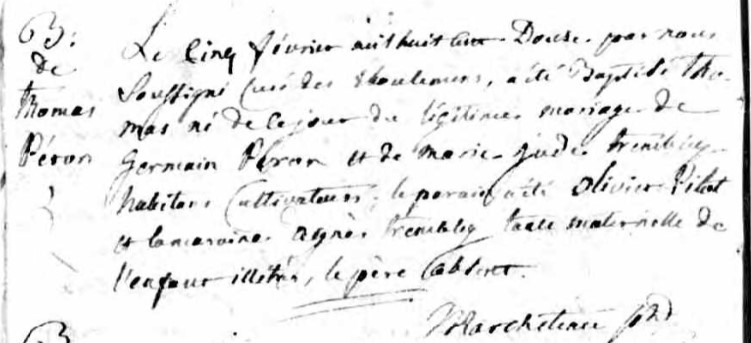 B:
de
thomas
Péron
Le Cinq février mil huit cent Douze par nous
soussigné Curé des Eboulemens, a été Baptisé tho-
mas né de ce jour du légitime mariage de
Germain Péron et de marie jude trembley
habitans Cultivateurs; le parain a été Olivier Pilot
et la maraine agnès trembley tante maternelle de
l'enfant illétrés, le père absent.
B